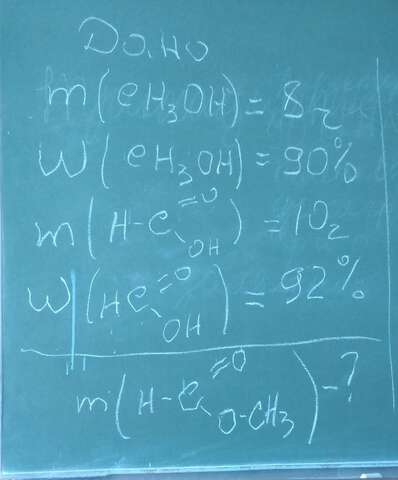 Дано
m(CH₃OH) = 8 г
W(CH₃OH) = 90%
m(H-C=O OH) = 10 г
W(HC=O OH) = 92%
m(H-C=O O-CH₃) - ?